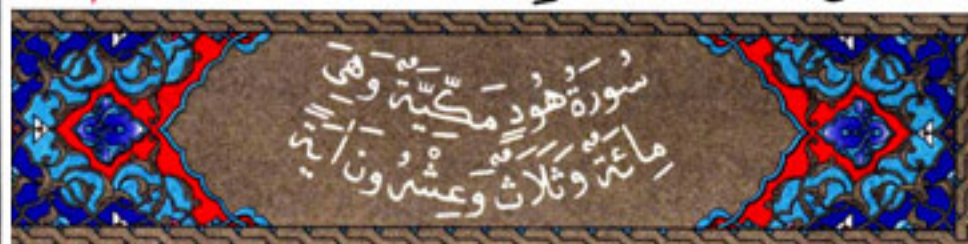 سُورَةُ هُودٍ مَكِّيَّةٌ وَهِيَ
مِائَةٌ وَثَلَاثٌ وَعِشْرُونَ اٰيَةً